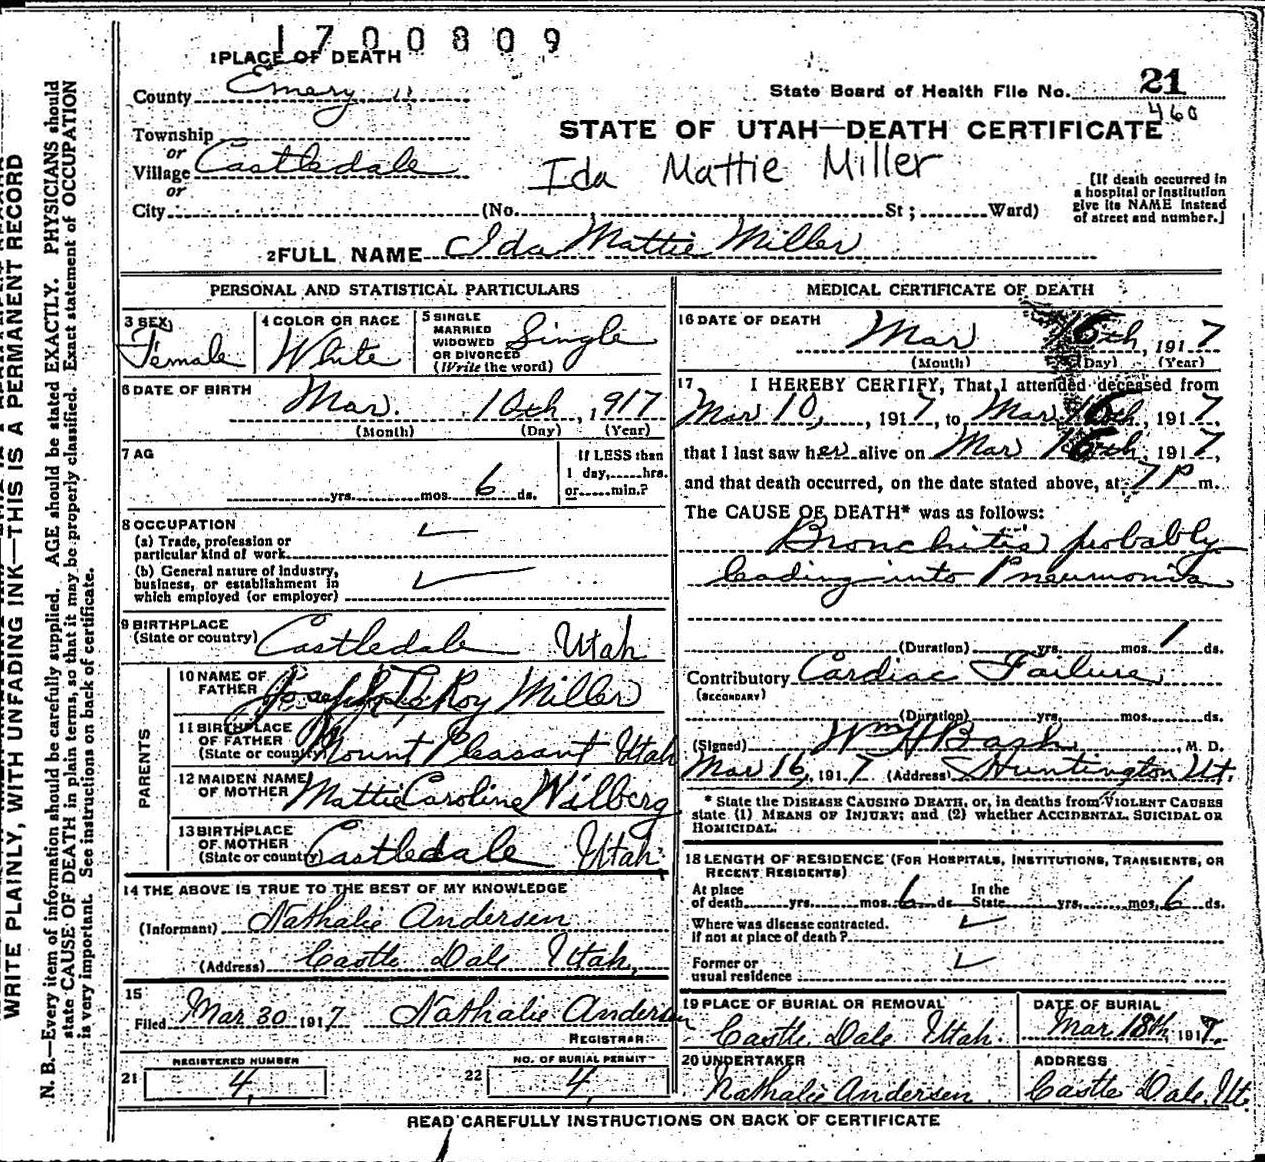 1700809
1 PLACE OF DEATH
County Emery
State Board of Health File No. 21
460
Township
or
Village Castledale
or
City (No. St; Ward)
STATE OF UTAH—DEATH CERTIFICATE
Ida Mattie Miller
[If death occurred in
a hospital or institution
give its NAME instead
of street and number.]
2 FULL NAME Ida Mattie Miller
PERSONAL AND STATISTICAL PARTICULARS
3 SEX Female
4 COLOR OR RACE White
5 SINGLE
MARRIED
WIDOWED
OR DIVORCED
(Write the word) Single
6 DATE OF BIRTH Mar. 10th, 1917
(Month) (Day) (Year)
7 AG
yrs. mos. 6 ds.
If LESS than
1 day, hrs.
or min.?
8 OCCUPATION
(a) Trade, profession or
particular kind of work
(b) General nature of industry,
business, or establishment in
which employed (or employer)
9 BIRTHPLACE
(State or country) Castledale Utah
PARENTS
10 NAME OF
FATHER Joseph LeRoy Miller
11 BIRTHPLACE
OF FATHER
(State or country) Mount Pleasant Utah
12 MAIDEN NAME
OF MOTHER Mattie Caroline Wilberg
13 BIRTHPLACE
OF MOTHER
(State or country) Castledale Utah.
14 THE ABOVE IS TRUE TO THE BEST OF MY KNOWLEDGE
(Informant) Nathalie Andersen
(Address) Castle Dale Utah,
15
Filed Mar 30 1917 Nathalie Andersen
REGISTRAR
21 REGISTERED NUMBER
4
22 NO. OF BURIAL PERMIT
4
MEDICAL CERTIFICATE OF DEATH
16 DATE OF DEATH
Mar 16th, 1917
(Month) (Day) (Year)
17 I HEREBY CERTIFY, That I attended deceased from
Mar 10, 1917, to Mar 16th, 1917
that I last saw her alive on Mar 16th, 1917,
and that death occurred, on the date stated above, at 7 P m.
The CAUSE OF DEATH* was as follows:
Bronchitis probably
leading into Pneumonia
(Duration) yrs. mos. 1 ds.
Contributory Cardiac Failure
(SECONDARY)
(Duration) yrs. mos. ds.
(Signed) Wm H Bash, M. D.
Mar 16, 1917 (Address) Huntington Ut.
* State the DISEASE CAUSING DEATH, or, in deaths from VIOLENT CAUSES
state (1) MEANS OF INJURY; and (2) whether ACCIDENTAL, SUICIDAL OR
HOMICIDAL.
18 LENGTH OF RESIDENCE (FOR HOSPITALS, INSTITUTIONS, TRANSIENTS, OR
RECENT RESIDENTS)
At place
of death yrs. mos. 6 ds
In the
State yrs. mos. 6 ds.
Where was disease contracted.
If not at place of death?
Former or
usual residence
19 PLACE OF BURIAL OR REMOVAL
Castle Dale Utah.
DATE OF BURIAL
Mar 18th, 1917.
20 UNDERTAKER
Nathalie Andersen
ADDRESS
Castle Dale, Ut.
READ CAREFULLY INSTRUCTIONS ON BACK OF CERTIFICATE
WRITE PLAINLY, WITH UNFADING INK—THIS IS A PERMANENT RECORD
N. B.—Every item of information should be carefully supplied. AGE should be stated EXACTLY. PHYSICIANS should
state CAUSE OF DEATH in plain terms, so that it may be properly classified. Exact statement of OCCUPATION
is very important. See instructions on back of certificate.